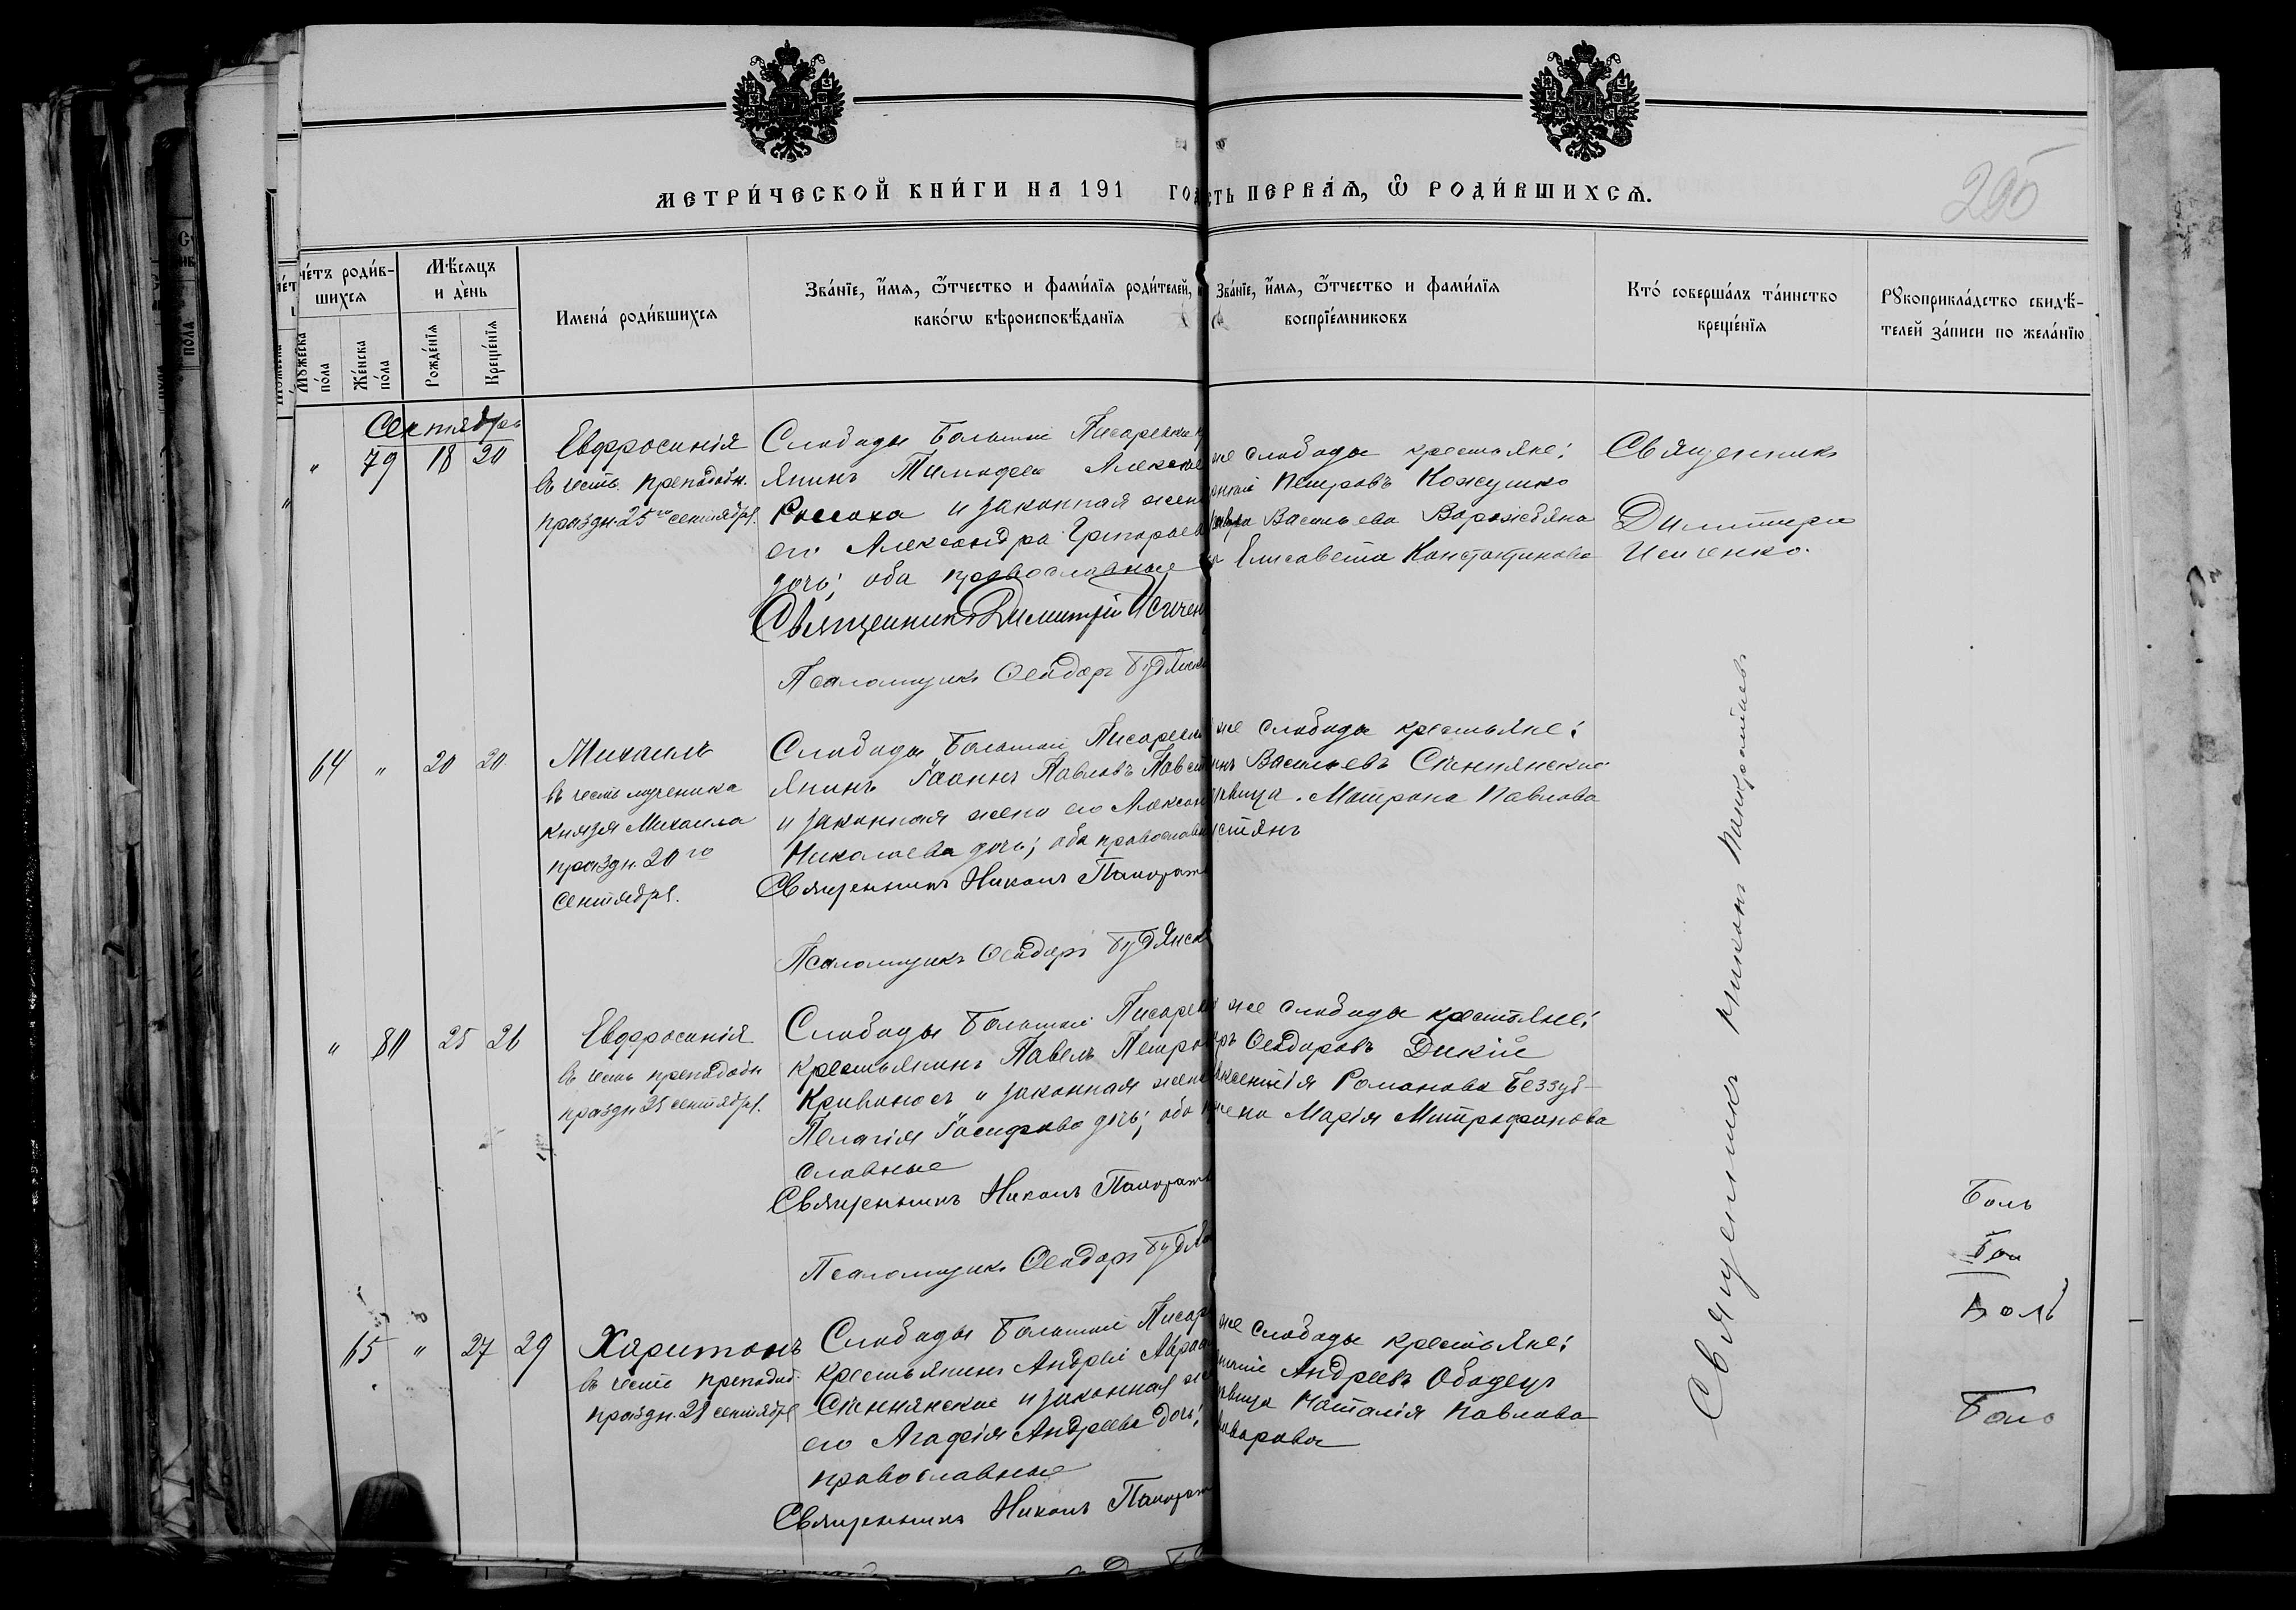 МЕТРИ́ЧЕСКОЙ КНИ́ГИ НА 191 ГОД
СТЬ ПЕРВА́Ѧ, Ѽ РОДИ́ВШИХСѦ.
205
че́тъ роди́в-
шихсѧ
Мꙋ́жеска по́ла
Же́нска по́ла
Мѣ́сѧцъ
и де́нь
Рожде́нїѧ
Креще́нїѧ
Имена̀ роди́вшихсѧ
Зва́нїе, и҆́мѧ, ѻ҆́тчество и фами́лїѧ роди́телей,
како́гѡ вѣроисповѣ́данїѧ
Зва́нїе, и҆́мѧ, ѻ҆́тчество и фами́лїѧ
воспрїе́мниковъ
Кто̀ соверша́лъ та́инство
креще́нїѧ
Рꙋкоприкла́дство свидѣ́-
телей за́писи по жела́нїю
Сентябрь
" 79 18 20
Евфросинія
въ честь преподобн.
праздн. 25го сентября.
Слободы Большой Писаревки
янинъ Тимофей Алексѣе
Россоха и законная жен
его Александра Григорьев
дочь; оба православные
Священникъ Димитрій Исичен
Псаломщикъ Ѳеодоръ Будянск
же слободы крестьяне:
Петровъ Кожушко
Васильева Ворожбяна
Елисавета Константинова
Священникъ
Димитрій
Исиченко.
64 " 20 20
Михаилъ
въ честь мученика
князя Михаила
праздн. 20го
сентября.
Слободы Большой Писаревк
янинъ Іоаннъ Павловъ
и законная жена его Алексан
Николаева дочь; оба православн
Священникъ Никонъ Панкрат
Псаломщикъ Ѳеодоръ Будянск
же слободы крестьяне:
Васильевъ Стеннянскій
Матрона Павлова
" 80 25 26
Евфросинія
въ честь преподобн
праздн 25 сентября.
Слободы Большой Писарев
крестьянинъ Павелъ Петро
Кривоносъ и законная жена
Пелагія Іосифова дочь; оба п
славные
Священникъ Никонъ Панкрат
Псаломщикъ Ѳеодоръ Будян
же слободы крестьяне:
Ѳеодоровъ Дикій
Романова Беззуб-
жена Марія Митрофанова
65 " 27 29
Харитонъ
въ честь преподоб-
праздн. 28 сентября
Слободы Большой Писар
крестьянинъ Андрей Авраам
Стеннянскій и законная же
его Агафія Андреева дочь;
православные
Священникъ Никонъ Панкрат
же слободы крестьяне:
Андреевъ Ободецъ
Наталія Павлова
Священникъ Никонъ Панкратьевъ
Боль
Бол
Боль
Боль